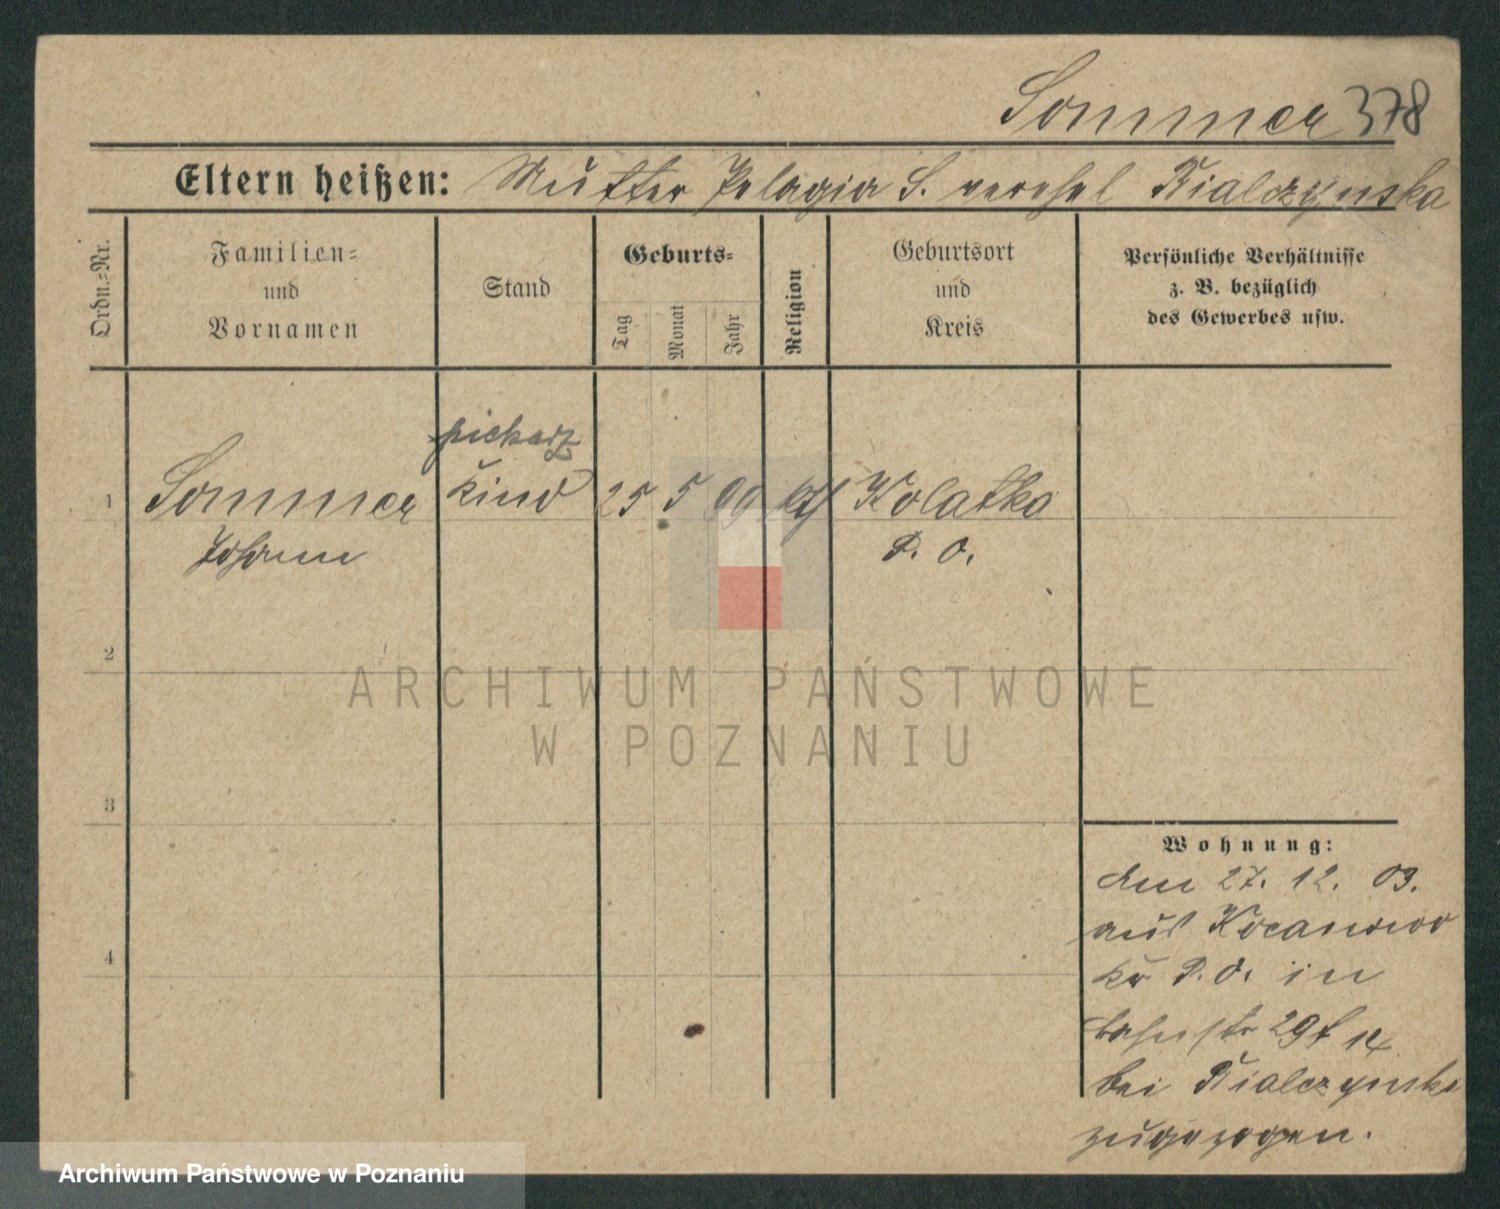 Sommer 378
Eltern heißen: Mutter Pelagia S. verehel Bialczynska
Ordn.=Nr.
Familien=
und
Vornamen
Stand
Geburts=
Tag
Monat
Jahr
Religion
Geburtsort
und
Kreis
Persönliche Verhältnisse
z. B. bezüglich
des Gewerbes usw.
piekarz
1 Sommer Kind 25 5 99 kth Kolatka
Johann P. O.
2
3
4
ARCHIWUM PAŃSTWOWE
W POZNANIU
Wohnung:
den 27. 12. 03.
aus
Kr P. O. in
Bahnstr 29 14
bei Bialczynska
zugezogen.
Archiwum Państwowe w Poznaniu